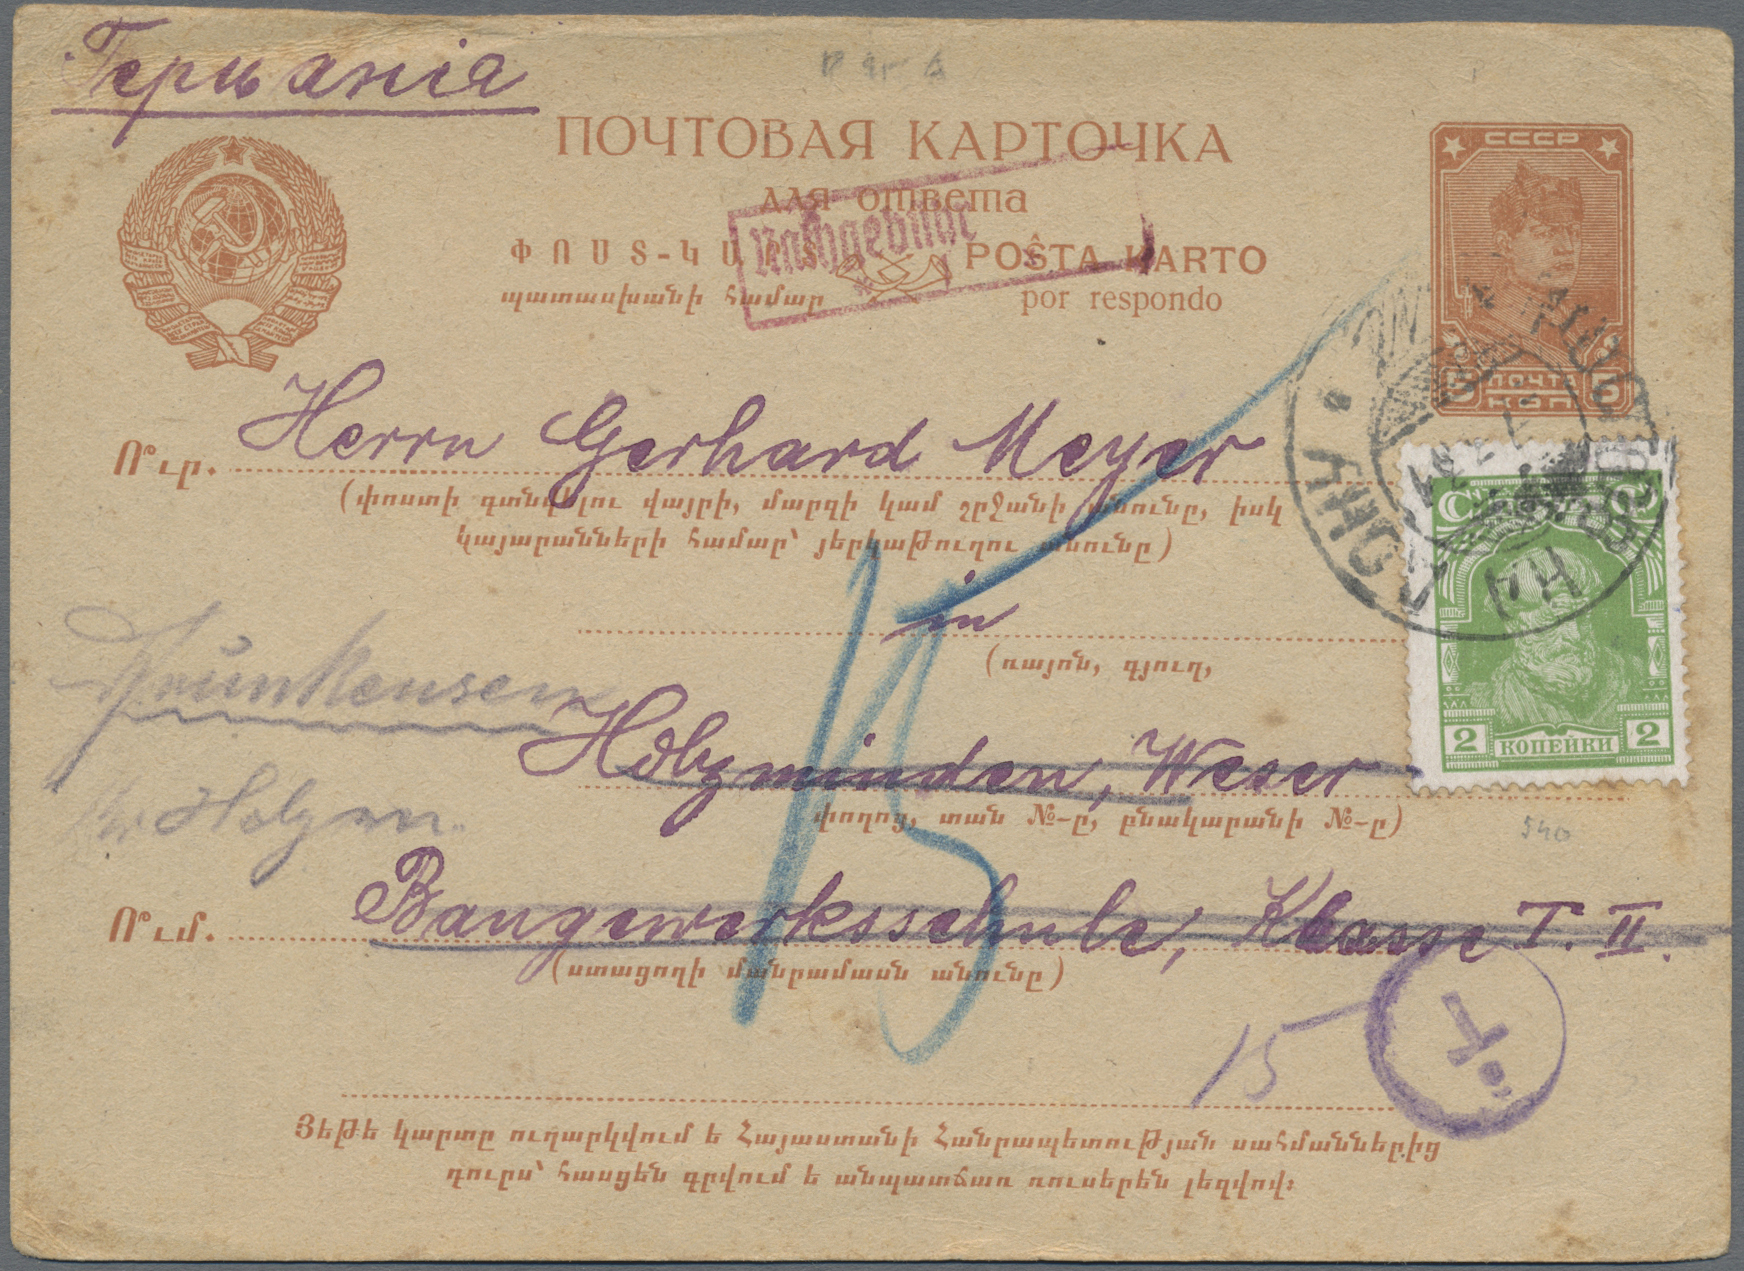 Германія
ПОЧТОВАЯ КАРТОЧКА
для ответа
ՓՈՍՏ-ԿԱ
POŜTA KARTO
պատասխանի համար
por respondo
Nachgebühr
СССР
ПОЧТА
5 КОП 5
Herrn Gerhard Meyer
Ո՞ւր.
(փոստի գտնվելու վայրի, մարզի կամ շրջանի անունը, իսկ
կայարանների համար՝ յերկաթուղու անունը)
in
(ռայոն, գյուղ,
Brünkensen
Holzminden, Weser
Kr Holzm.
փողոց, տան №-ը, բնակարանի №-ը)
2 КОПЕЙКИ 2
540
15
Ո՞ւմ.
Baugewerksschule, Klasse T. II.
(ստացողի մանրամասն անունը)
T
15
Յեթե կարտը ուղարկվում ե Հայաստանի Հանրապետության սահմաններից
դուրս՝ հասցեն գրվում ե անպատճառ ռուսերեն լեզվով։